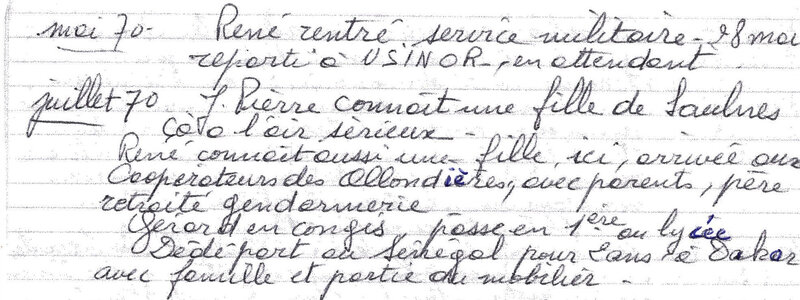 mai 70 - René rentré service militaire - 28 mai
reparti à USINOR -, en attendant
juillet 70 J. Pierre connaît une fille de Saulnes
Çà a l'air sérieux -
René connait aussi une fille, ici, arrivée aux
Coopérateurs des Ollondières, avec parents, père
retraité gendarmerie
Gérard en congés, passe en 1ère au lycée
Dédé part au Sénégal pour 2 ans à Dakar
avec famille et partie du mobilier -